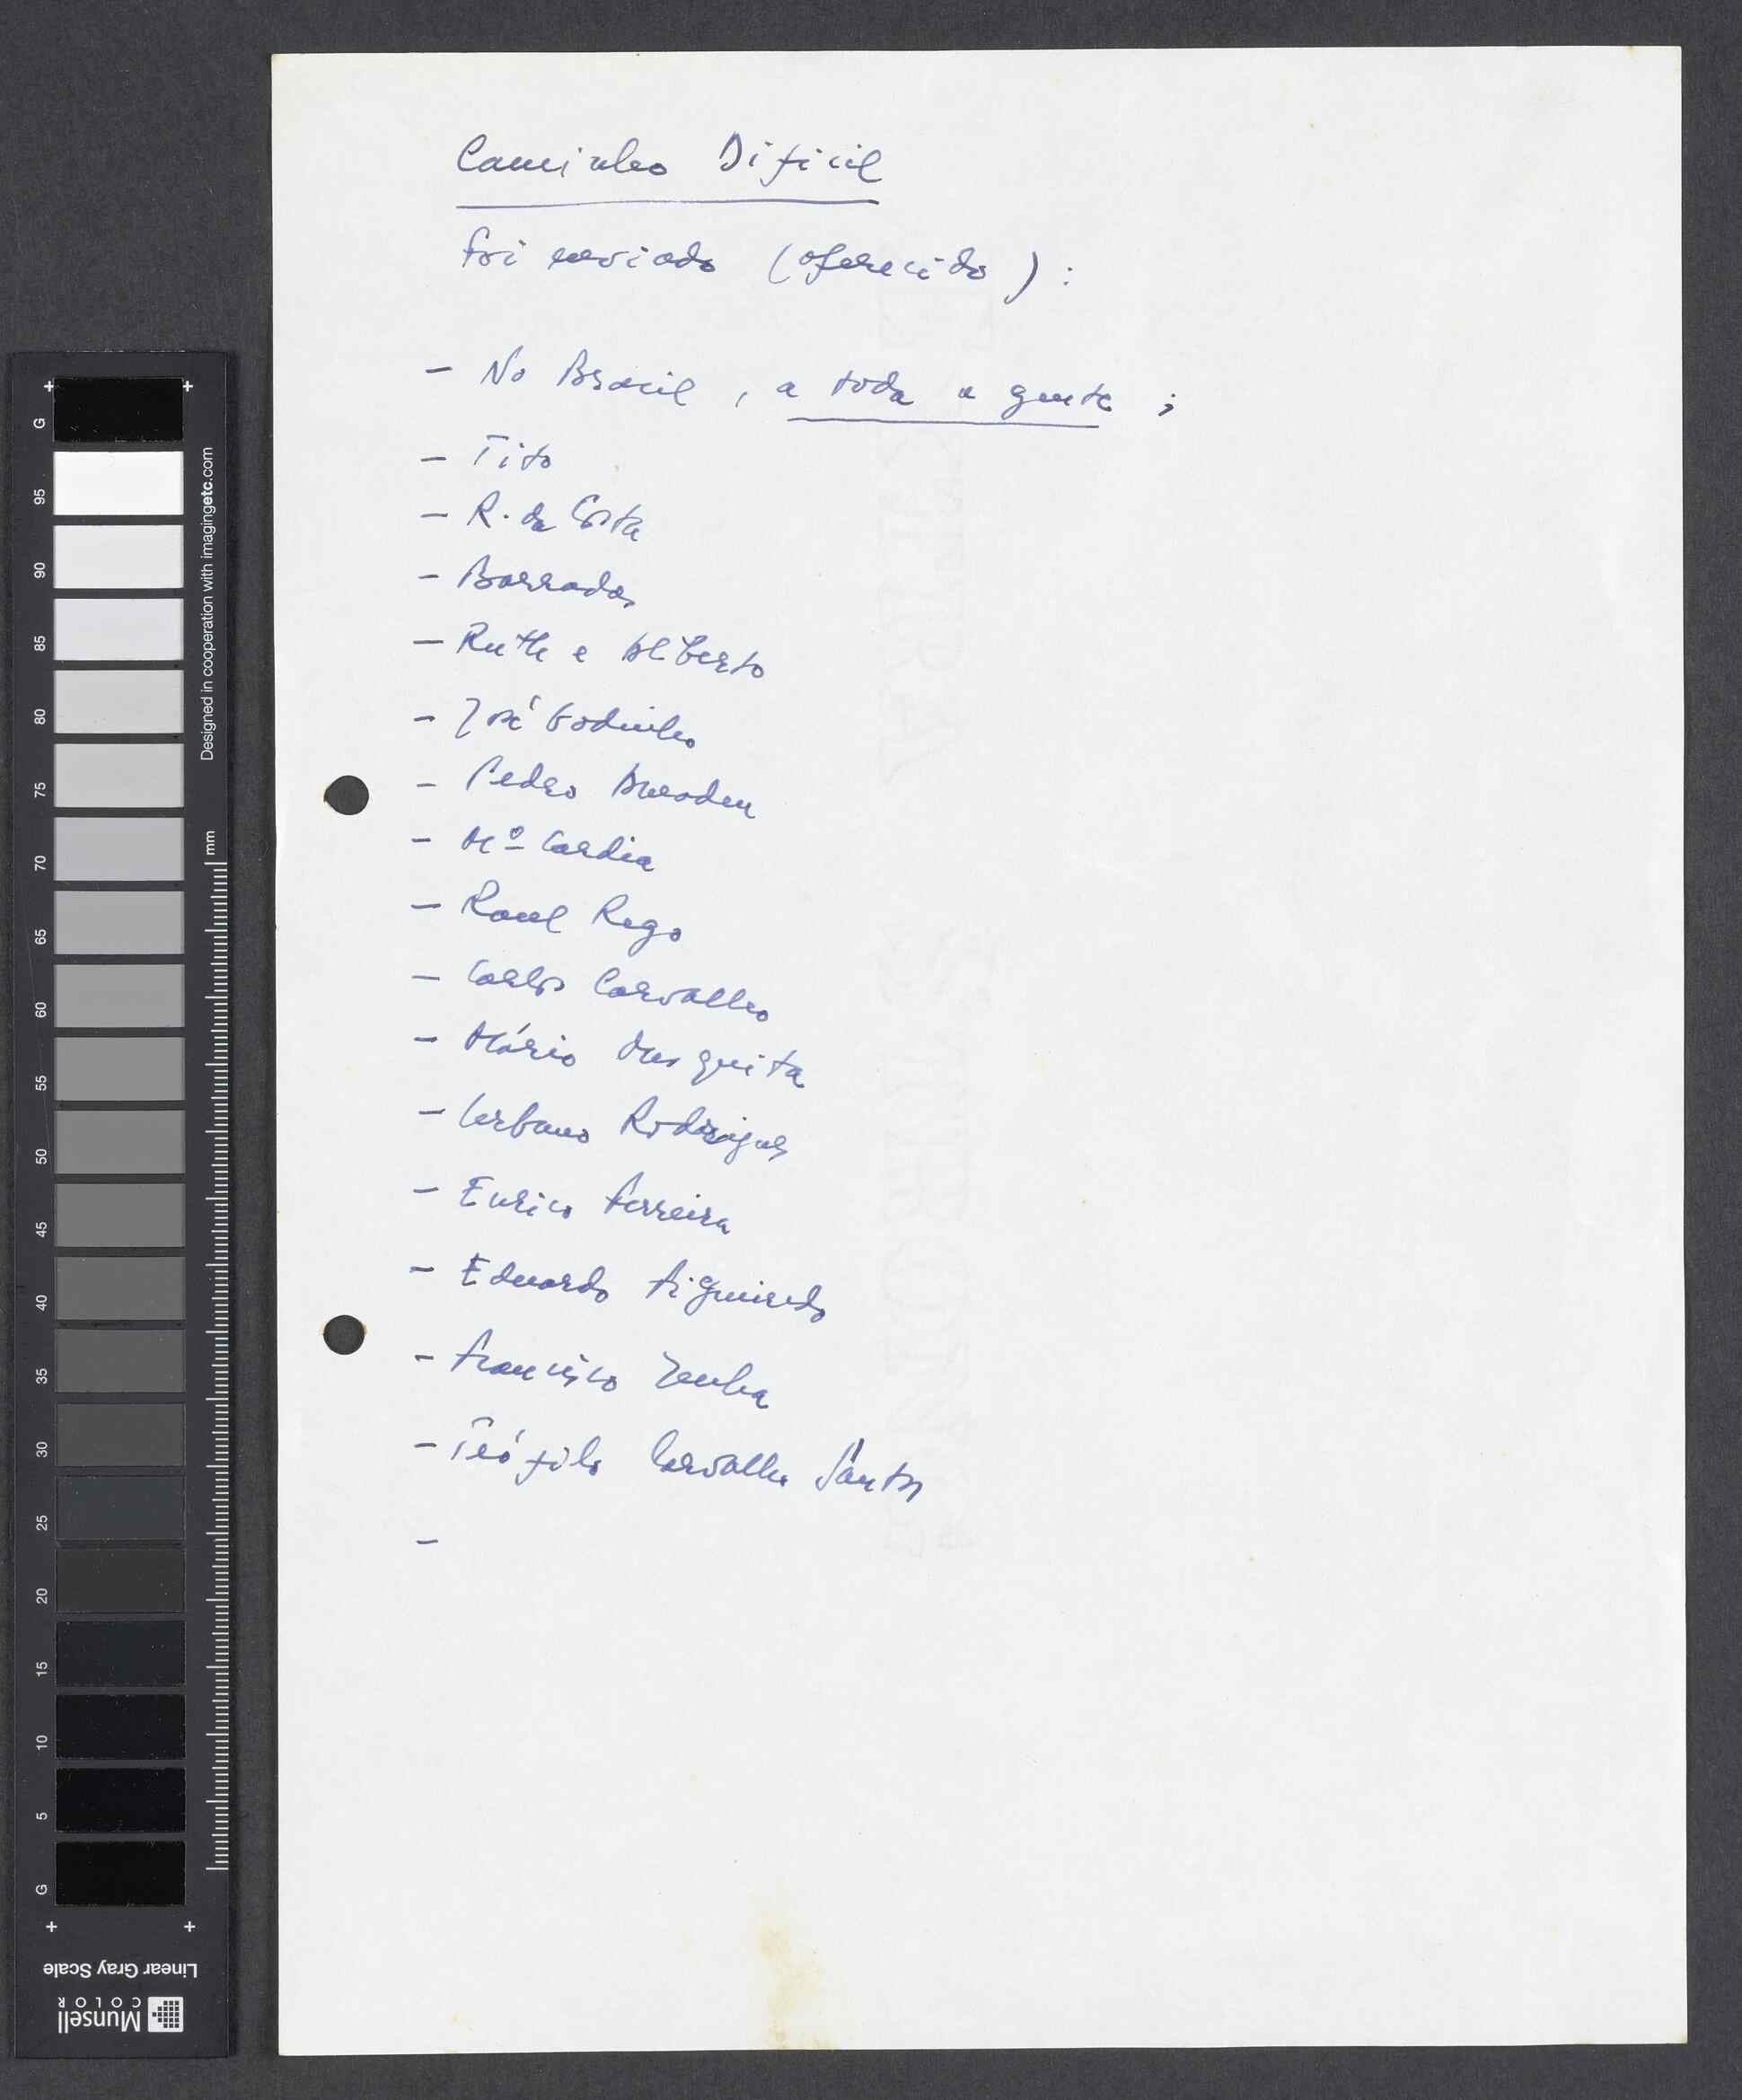 Caminho Difícil
foi enviado (oferecido) :
- No Brasil, a toda a gente ;
- Tito
- R. da Costa
- Barradas
- Ruth e Alberto
- José Godinho
- Pedro
- Mº Cardia
- Raul Rego
- Carlos Carvalho
- Mário Mesquita
- Urbano Rodrigues
- Eurico Ferreira
- Eduardo Figueiredo
- Francisco Zenha
- Teófilo Carvalho Santos
-
G
95
90
85
80
75
70
65
60
55
50
45
40
35
30
25
20
15
10
5
G
Designed in cooperation with imagingetc.com
mm
Linear Gray Scale
Munsell
COLOR